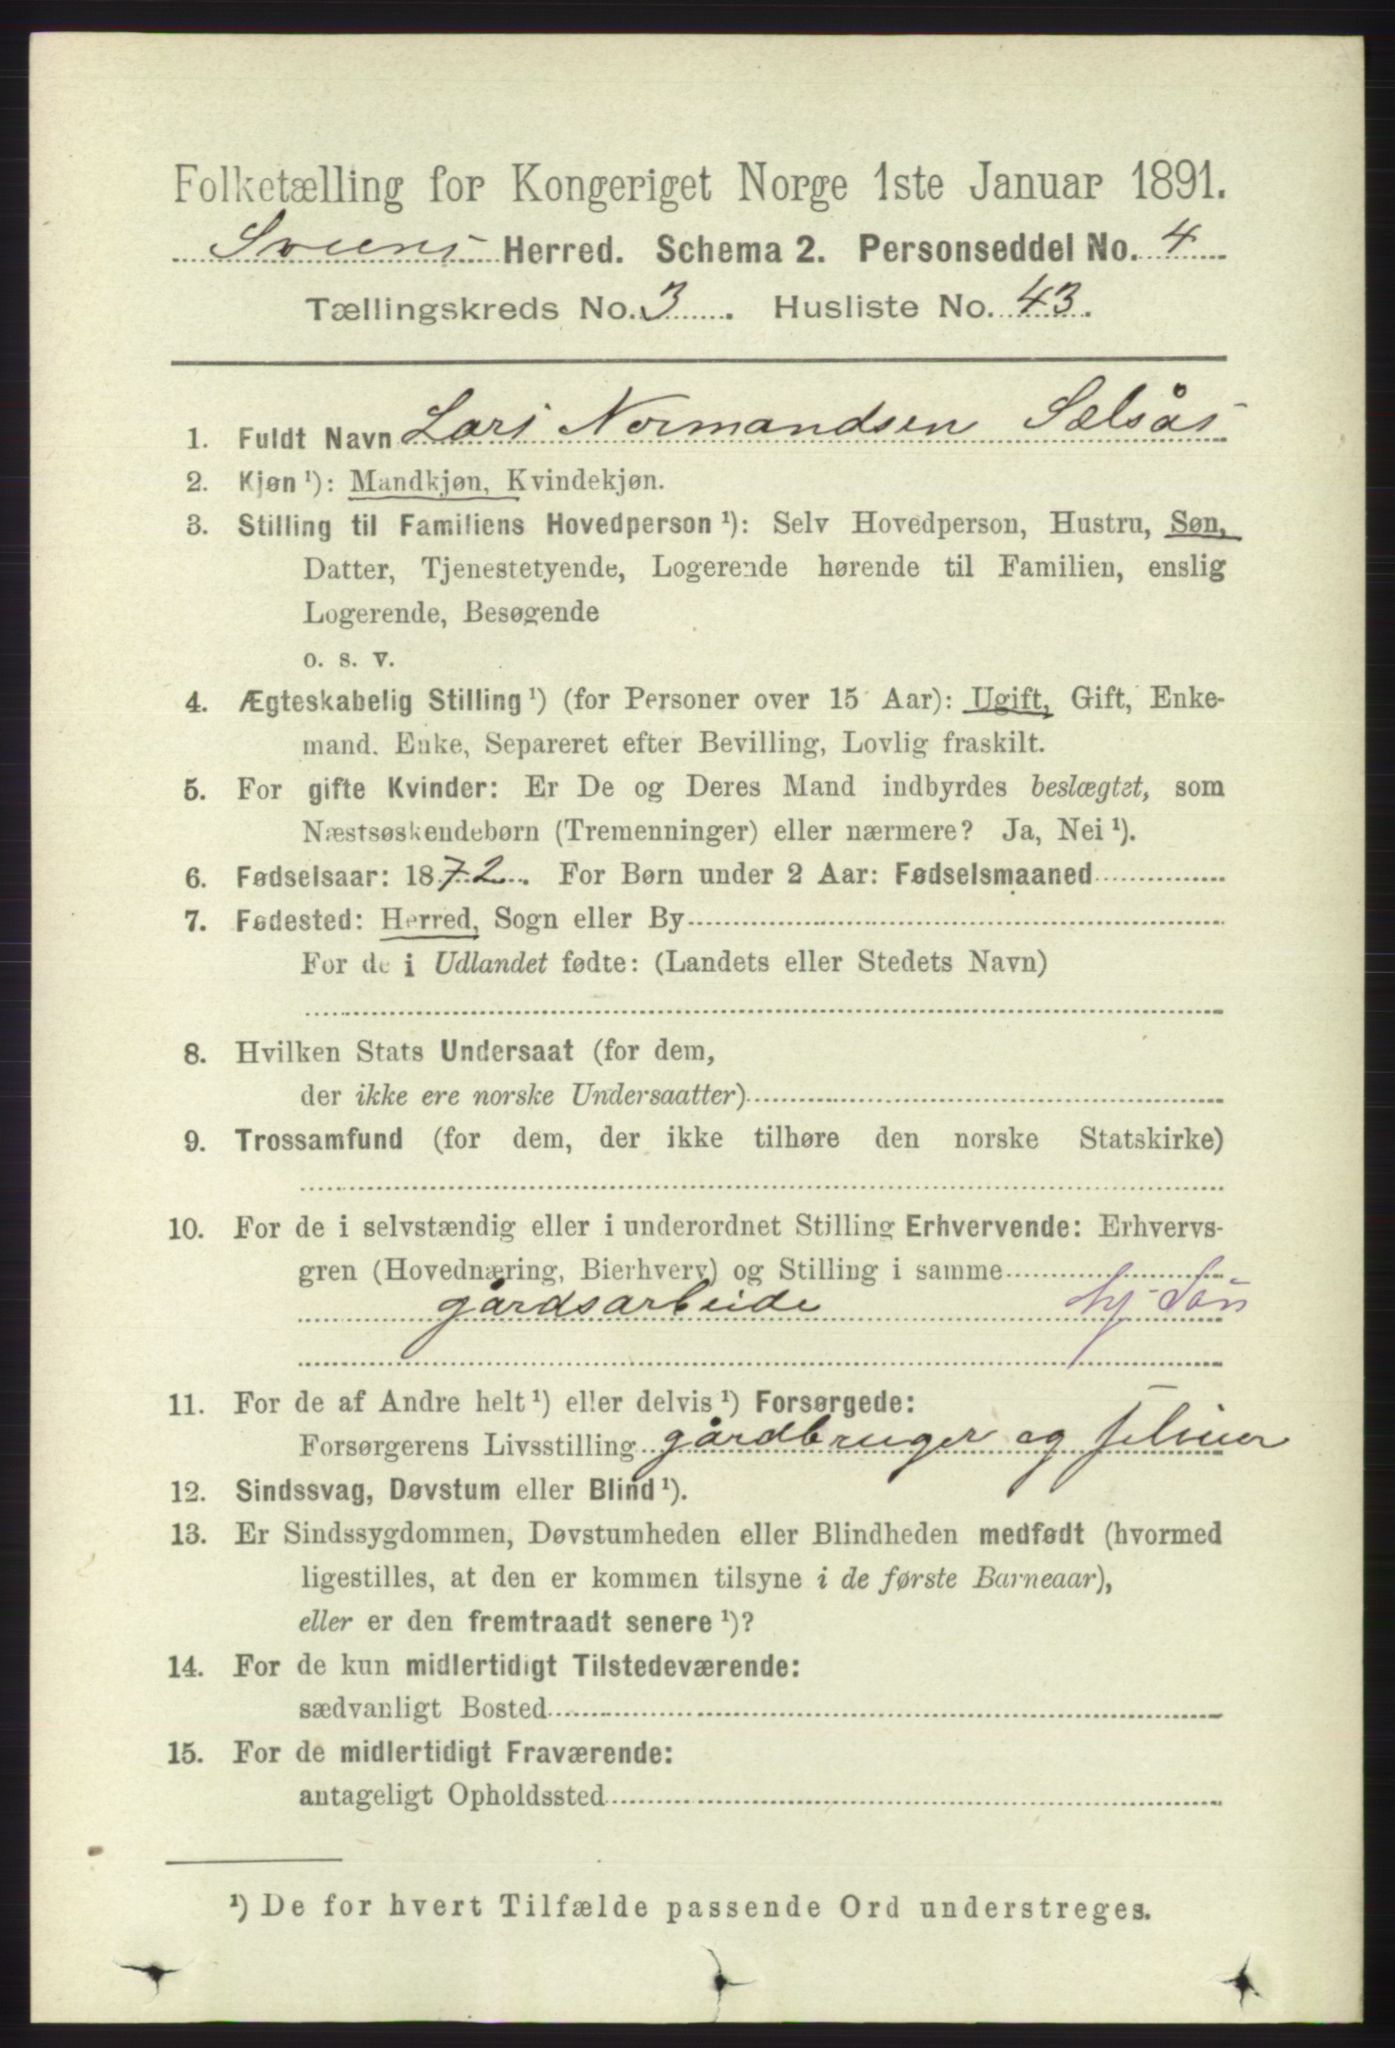 Folketælling for Kongeriget Norge 1ste Januar 1891.
Sveens Herred. Schema 2. Personseddel No. 4
Tællingskreds No. 3. Husliste No. 43.
1. Fuldt Navn Lars Normandsen Sælsås
2. Kjøn ¹): Mandkjøn, Kvindekjøn.
3. Stilling til Familiens Hovedperson ¹): Selv Hovedperson, Hustru, Søn,
Datter, Tjenestetyende, Logerende hørende til Familien, enslig
Logerende, Besøgende
o. s. v.
4. Ægteskabelig Stilling ¹) (for Personer over 15 Aar): Ugift, Gift, Enke-
mand, Enke, Separeret efter Bevilling, Lovlig fraskilt.
5. For gifte Kvinder: Er De og Deres Mand indbyrdes beslægtet, som
Næstsøskendebørn (Tremenninger) eller nærmere? Ja, Nei ¹).
6. Fødselsaar: 1872. For Børn under 2 Aar: Fødselsmaaned
7. Fødested: Herred, Sogn eller By
For de i Udlandet fødte: (Landets eller Stedets Navn)
8. Hvilken Stats Undersaat (for dem,
der ikke ere norske Undersaatter)
9. Trossamfund (for dem, der ikke tilhøre den norske Statskirke)
10. For de i selvstændig eller i underordnet Stilling Erhvervende: Erhvervs-
gren (Hovednæring, Bierhverv) og Stilling i samme
gårdsarbeide hj. Søn
11. For de af Andre helt ¹) eller delvis ¹) Forsørgede:
Forsørgerens Livsstilling gårdbruger og
12. Sindssvag, Døvstum eller Blind ¹).
13. Er Sindssygdommen, Døvstumheden eller Blindheden medfødt (hvormed
ligestilles, at den er kommen tilsyne i de første Barneaar),
eller er den fremtraadt senere ¹)?
14. For de kun midlertidigt Tilstedeværende:
sædvanligt Bosted
15. For de midlertidigt Fraværende:
antageligt Opholdssted
¹) De for hvert Tilfælde passende Ord understreges.